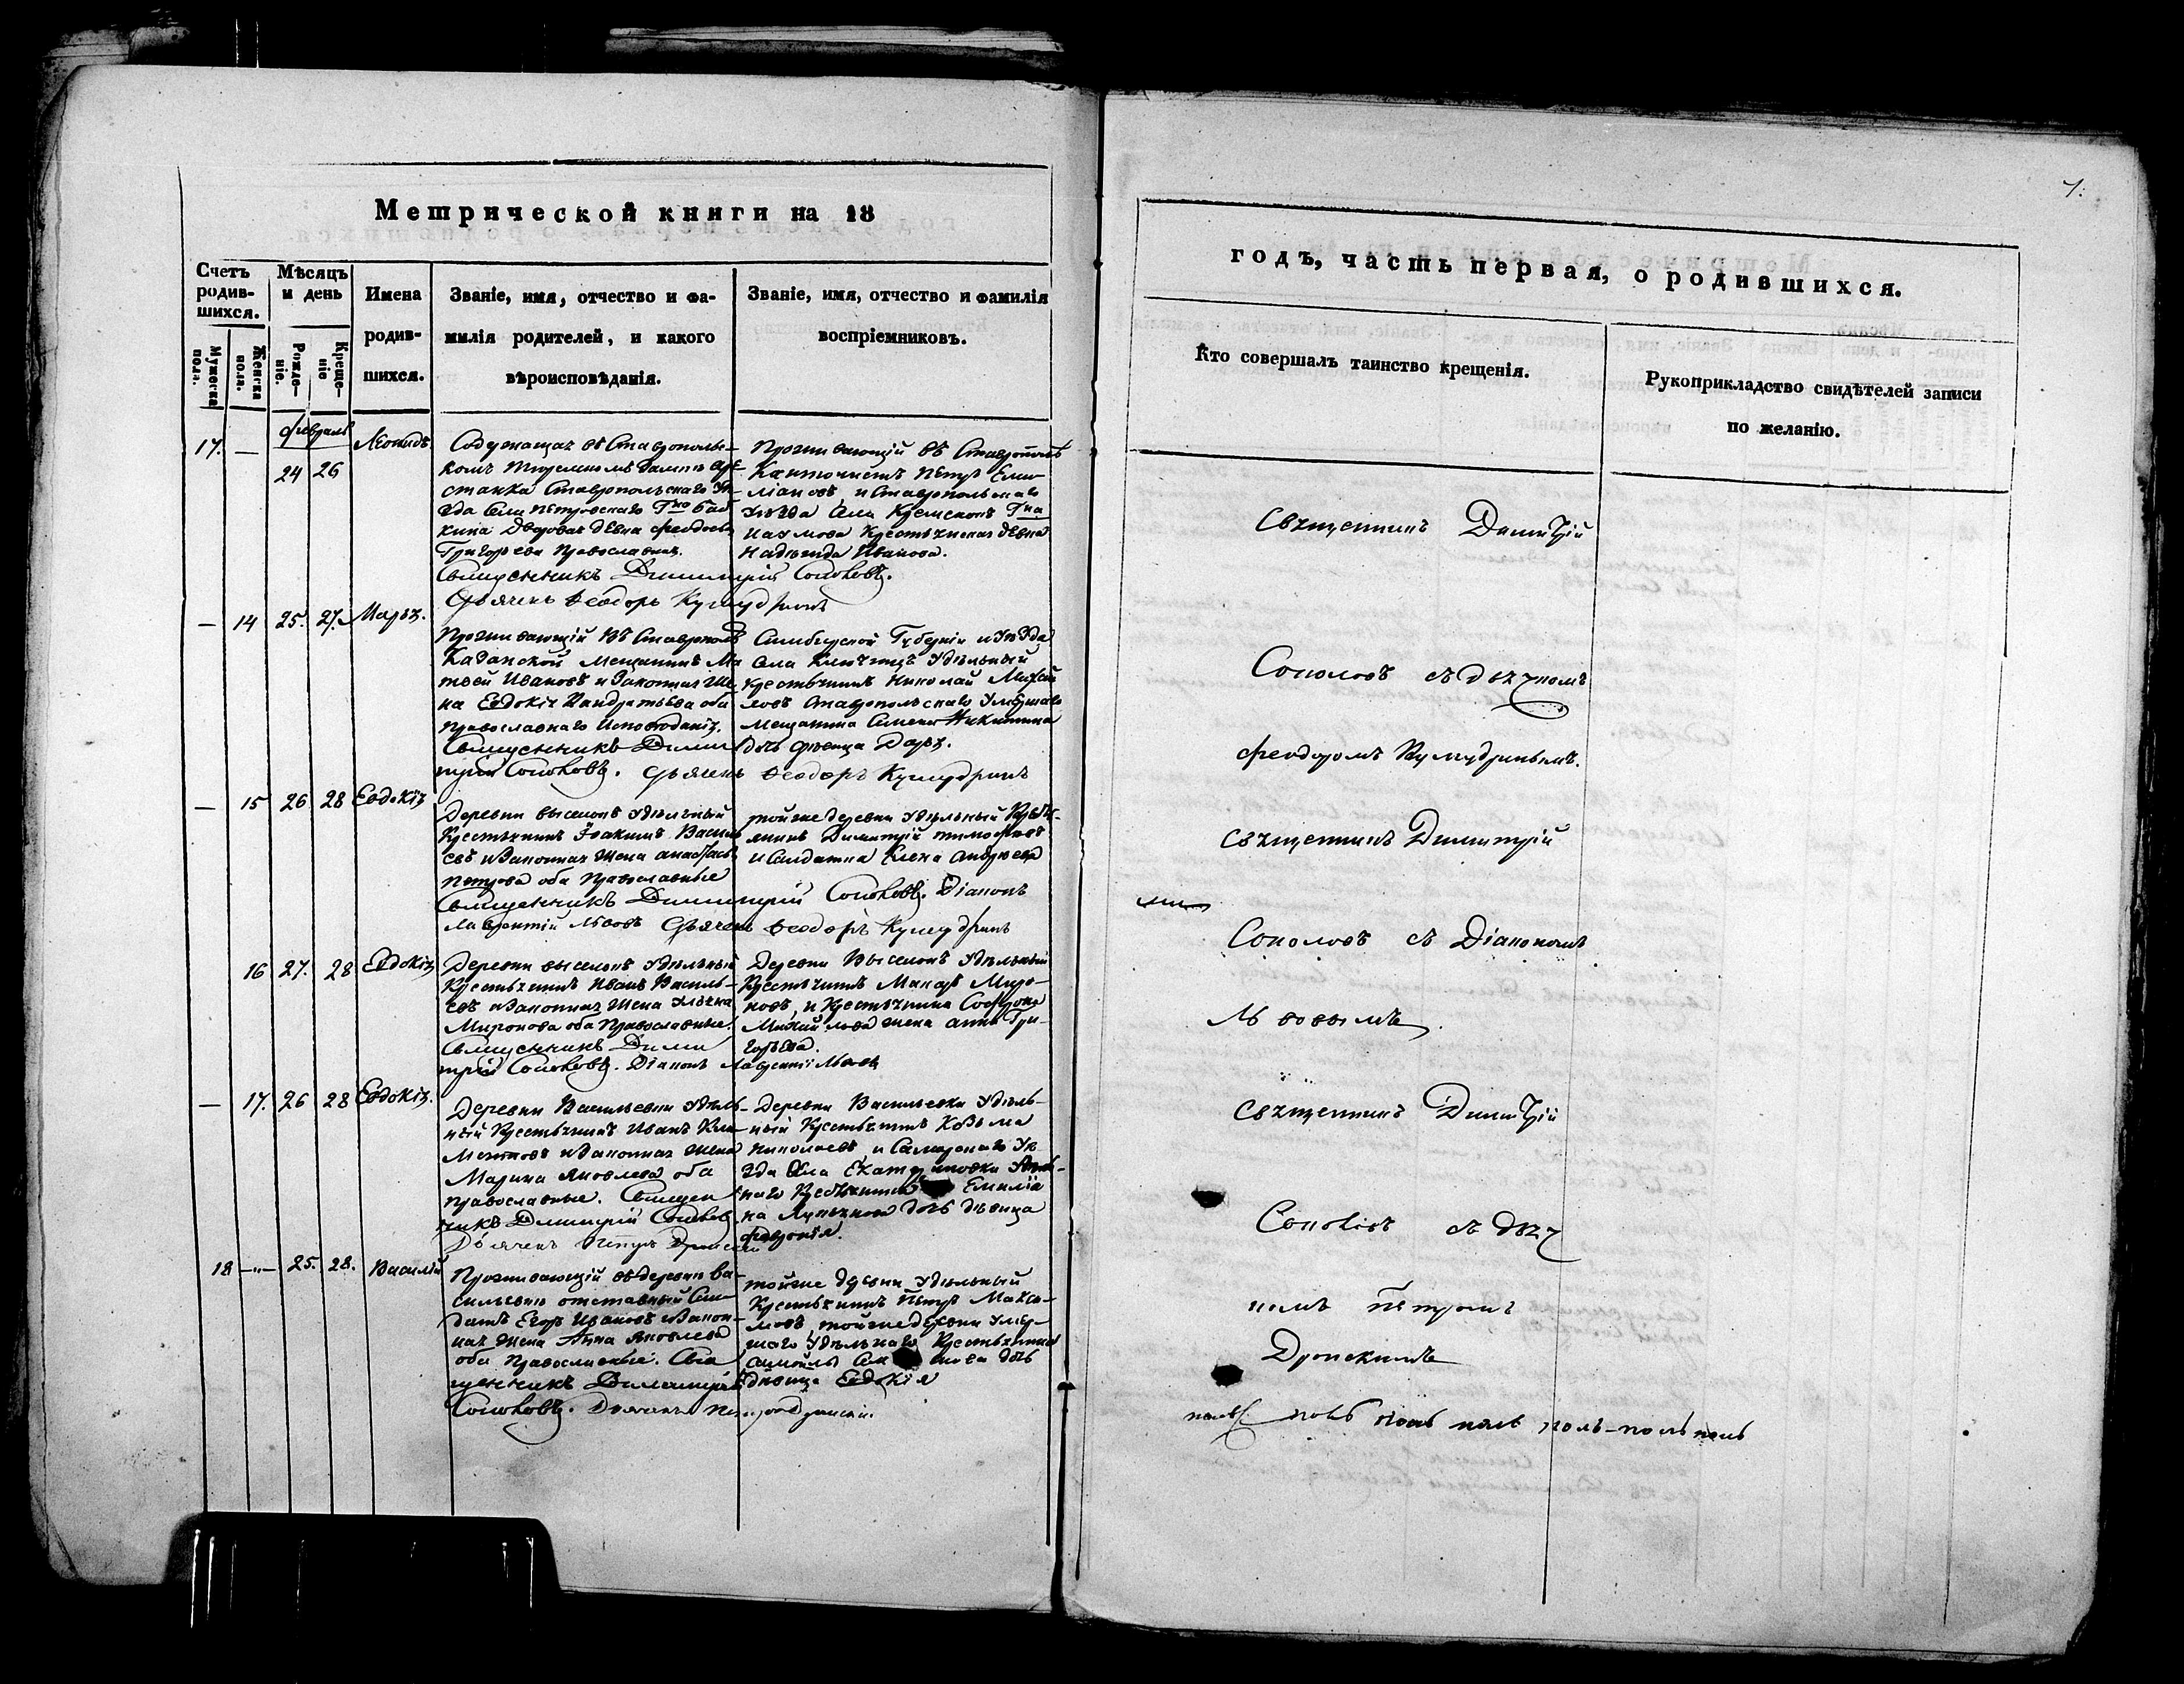 Метрической книги на 18
Счетъ родив-шихся.
Мѣсяцъ и день
Имена родив-шихся.
Званіе, имя, отчество и фа-
милія родителей, и какого
вѣроисповѣданія.
Званіе, имя, отчество и фамилія
воспріемниковъ.
Мужеска пола.
Женска пола.
Рожде-ніе.
Креще-ніе
17. — февраль 24 26 Леонидъ
Содержащая въ Ставрополь-
комъ тюремномъ замкѣ аре-
станка Ставропольскаго Уѣ-
зда Села Петровскаго Гна
кина Дворовая девка Феодосья
Григорьева православная.
Священникъ Димитрій Соколовъ.
Дьячекъ Ѳеодоръ Кумудринъ
Проживающій въ Ставрополѣ
Кантонистъ Петръ Еми-
ліановъ, и Ставропольскаго
Уѣзда Села Гна
Крестьянская девка
Надежда Иванова.
— 14 25. 27. Марья.
Проживающій въ Ставрополѣ
Казанской Мещанинъ Ма
твей Ивановъ и законная же
на Евдокія Кандратьева оба
православнаго исповеданія.
Священникъ Дими
трій Соколовъ. Дьячекъ Ѳеодоръ Кумудринъ
Симбирской Губерніи и Уѣзда
Села Ключищъ Удѣльный
крестьянинъ Николай Михай
ловъ Ставропольскаго Умершаго
Мещанина Семена Никитина
дочь девица Дарья.
— 15 26 28 Евдокія
Деревни Выселокъ Удѣльный
Крестьянинъ Іоакимъ Василь
евъ и законная жена Анастась
Петрова оба православные
Священникъ Димитрій Соколовъ. Діаконъ
Лаврентій Львовъ Дьячекъ Ѳеодоръ Кумудринъ
тойже деревни Удѣльный Кресть-
янинъ Димитрій Тимофеевъ
и Солдатка Елена Андреева
16 27. 28 Евдокія
Деревни Выселокъ Удѣльный
Крестьянинъ Иванъ Василь-
евъ и законная жена Ульяна
Миронова оба православные.
Священникъ Дими
трій Соколовъ. Діаконъ Лаврентій Львовъ
Деревни Выселокъ Удѣльный
Крестьянинъ Макаръ Миро-
новъ, и Крестьянина Софрона
Михайлова жена Анна Гри-
горьева.
— 17. 26 28 Евдокія.
Деревни Васильевки Удѣль-
ный Крестьянинъ Иванъ Кли-
ментовъ и законная жена
Марина Яковлева оба
православные. Священ
никъ Димитрій Соколовъ
Дьячекъ Петръ
Деревни Васильевки Удѣль-
ный Крестьянинъ Козьма
Николаевъ, и Самарскаго Уѣ-
зда Села Екатериновки Удѣль-
наго Крестьянина Емиліа
на дочь девица
Февронія.
18 —"— 25. 28. Василій
Проживающій въ деревнѣ Ва-
сильевкѣ отставный Сол-
датъ Егоръ Ивановъ и закон-
ная жена Анна Яковлева
оба православные. Свя
щенникъ Димитрій
Соколовъ. Дьячекъ Петръ
тойже деревни Удѣльный
Крестьянинъ Петръ Макси-
мовъ тойже деревни умер-
шаго Удѣльнаго Крестьянина
Самойлы дочь
девица Евдокія
7.
годъ, часть первая, о родившихся.
Кто совершалъ таинство крещенія.
Рукоприкладство свидѣтелей записи
по желанію.
Священникъ Димитрій
Соколовъ съ дьячкомъ
Феодоромъ Кумудринымъ.
Священникъ Димитрій
Соколовъ съ Діакономъ
Львовымъ.
Священникъ Димитрій
Соколовъ съ дьяч
комъ Петромъ